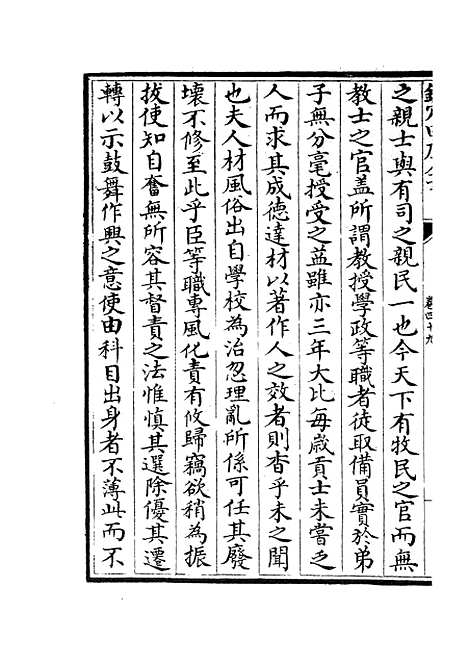 卷四十九
之親士與有司之親民一也今天下有牧民之官而無
教士之官盖所謂教授學政等職者徒取備員實於弟
子無分毫授受之益雖亦三年大比每歲貢士未嘗乏
人而求其成德達材以著作人之效者則杳乎未之聞
也夫人材風俗出自學校為治忽理亂所係可任其廢
壞不修至此乎臣等職專風化責有攸歸竊欲稍為振
拔使知自奮無所容其督責之法惟慎其選除優其遷
轉以示鼓舞作興之意使由科目出身者不薄此而不